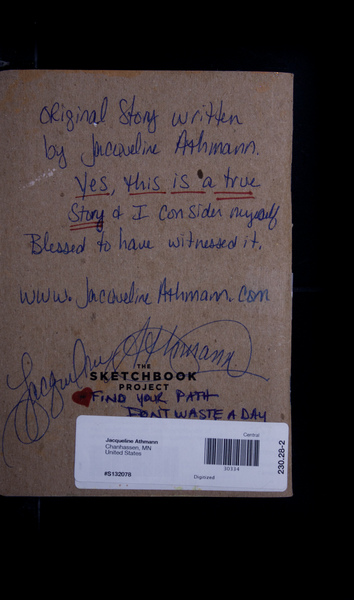 Original Story written
by Jacqueline Athmann.
Yes, this is a true
Story & I Consider myself
Blessed to have witnessed it.
www.JacquelineAthmann.com
Jacqueline Athmann
THE
SKETCHBOOK
PROJECT
FIND YOUR PATH
DON'T WASTE A DAY
Central
Jacqueline Athmann
Chanhassen, MN
United States
30334
#S132078
Digitized
230.28-2